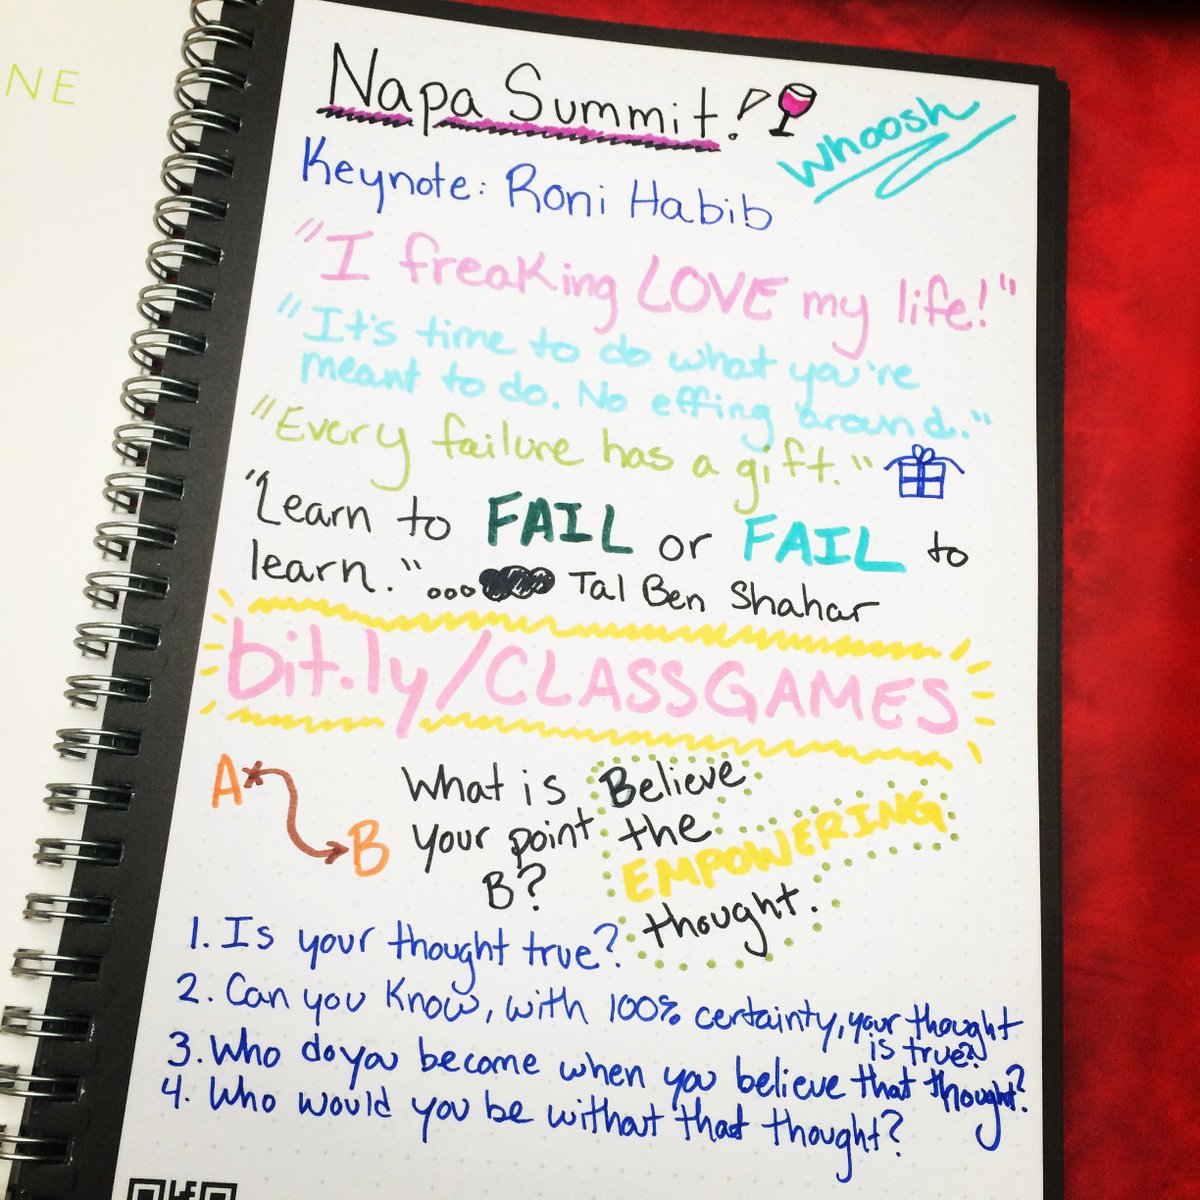 NE
Napa Summit!
Whoosh
Keynote: Roni Habib
"I freaking LOVE my life!"
"It's time to do what you're
meant to do. No effing around."
"Every failure has a gift."
"Learn to FAIL or FAIL to
learn."... Tal Ben Shahar
bit.ly/CLASSGAMES
A B
What is
your point
B?
Believe
the
EMPOWERING
thought.
1. Is your thought true?
2. Can you know, with 100% certainty, your thought
is true?
3. Who do you become when you believe that thought?
4. Who would you be without that thought?